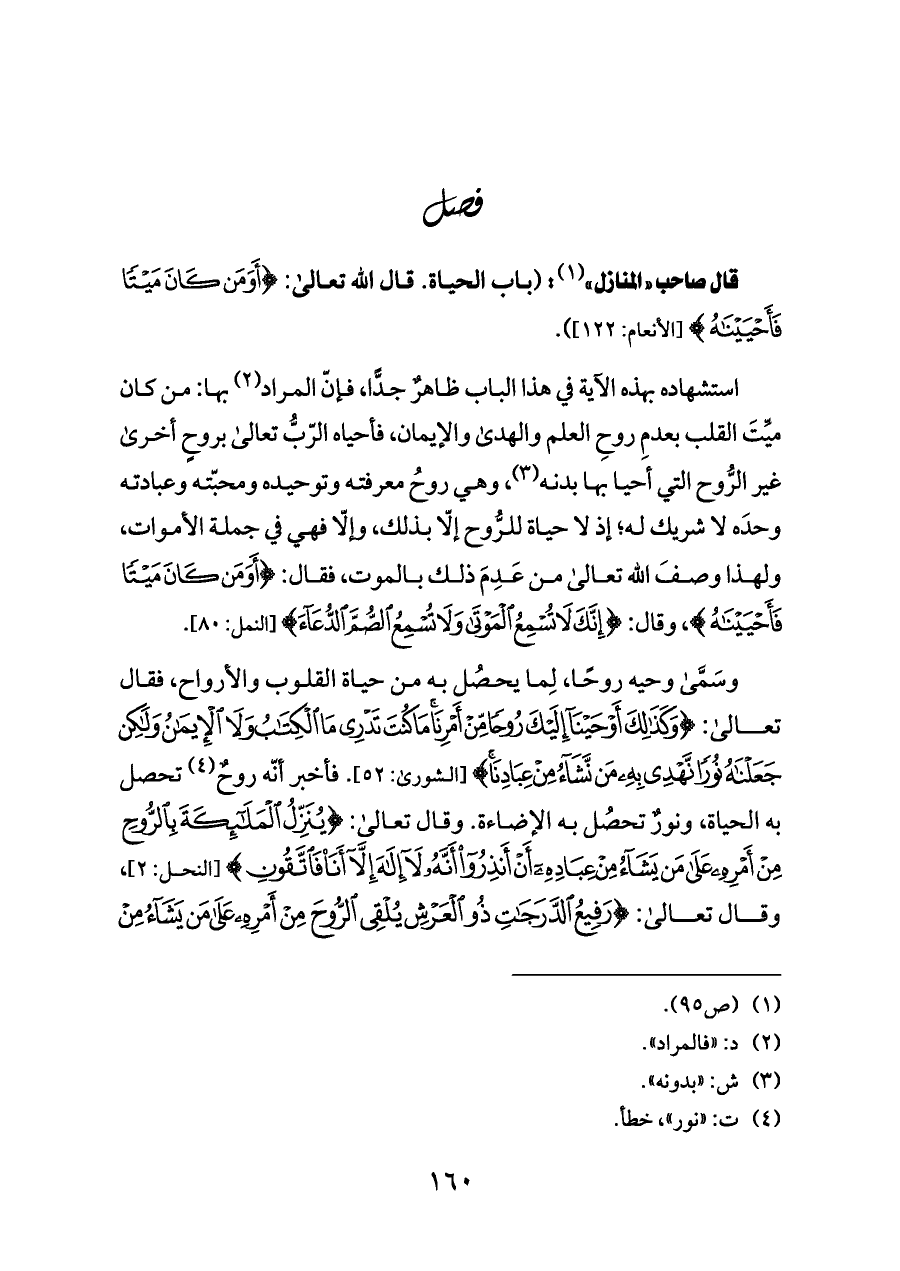 فصل
قال صاحب «المنازل»(١): (باب الحياة. قال الله تعالىٰ: ﴿أَوَمَن كَانَ مَيْتًا
فَأَحْيَيْنَٰهُ﴾ [الأنعام: ١٢٢]).
استشهاده بهذه الآية في هذا الباب ظاهرٌ جدًّا، فإنّ المراد(٢) بها: من كان
ميِّتَ القلب بعدمِ روحِ العلم والهدىٰ والإيمان، فأحياه الرّبُّ تعالىٰ بروحٍ أخرىٰ
غير الرُّوح التي أحيا بها بدنه(٣)، وهي روحُ معرفته وتوحيده ومحبّته وعبادته
وحدَه لا شريك له؛ إذ لا حياة للرُّوح إلّا بذلك، وإلّا فهي في جملة الأموات،
ولهذا وصفَ الله تعالىٰ من عَدِمَ ذلك بالموت، فقال: ﴿أَوَمَن كَانَ مَيْتًا
فَأَحْيَيْنَٰهُ﴾، وقال: ﴿إِنَّكَ لَا تُسْمِعُ ٱلْمَوْتَىٰ وَلَا تُسْمِعُ ٱلصُّمَّ ٱلدُّعَآءَ﴾ [النمل: ٨٠].
وسَمَّىٰ وحيه روحًا، لِما يحصُل به من حياة القلوب والأرواح، فقال
تعالىٰ: ﴿وَكَذَٰلِكَ أَوْحَيْنَآ إِلَيْكَ رُوحًا مِّنْ أَمْرِنَا ۚ مَا كُنتَ تَدْرِى مَا ٱلْكِتَٰبُ وَلَا ٱلْإِيمَٰنُ وَلَٰكِن
جَعَلْنَٰهُ نُورًا نَّهْدِى بِهِۦ مَن نَّشَآءُ مِنْ عِبَادِنَا ۚ﴾ [الشورىٰ: ٥٢]. فأخبر أنّه روحٌ(٤) تحصل
به الحياة، ونورٌ تحصُل به الإضاءة. وقال تعالىٰ: ﴿يُنَزِّلُ ٱلْمَلَٰٓئِكَةَ بِٱلرُّوحِ
مِنْ أَمْرِهِۦ عَلَىٰ مَن يَشَآءُ مِنْ عِبَادِهِۦٓ أَنْ أَنذِرُوٓا۟ أَنَّهُۥ لَآ إِلَٰهَ إِلَّآ أَنَا۠ فَٱتَّقُونِ﴾ [النحل: ٢]،
وقال تعالىٰ: ﴿رَفِيعُ ٱلدَّرَجَٰتِ ذُو ٱلْعَرْشِ يُلْقِى ٱلرُّوحَ مِنْ أَمْرِهِۦ عَلَىٰ مَن يَشَآءُ مِنْ
(١) (ص٩٥).
(٢) د: «فالمراد».
(٣) ش: «بدونه».
(٤) ت: «نور»، خطأ.
١٦٠